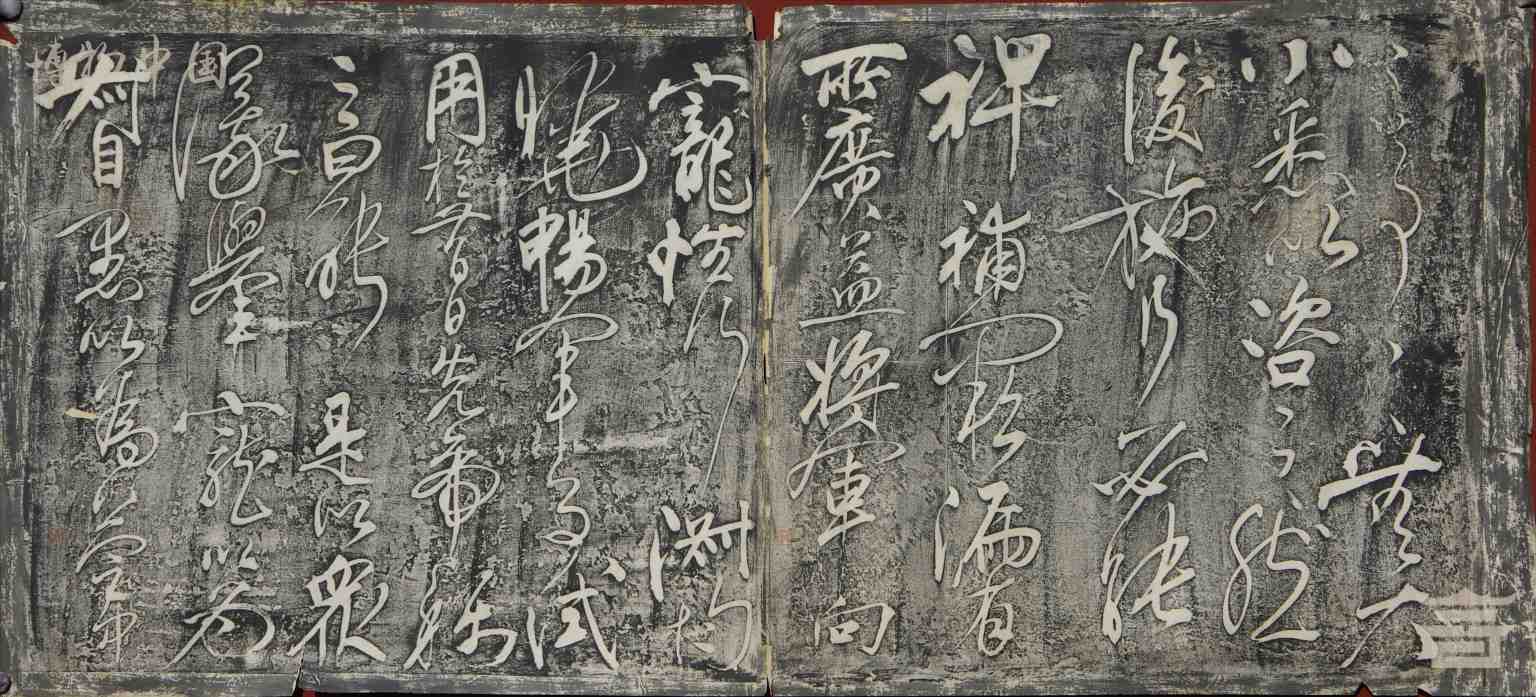 之事事無大
小悉以咨之然
後施行必能
裨補闕漏有
所廣益將軍向
寵性行淑均
曉暢軍事試
用於昔日先帝稱
之曰能是以衆
議舉寵以為
督愚以為營中
博物中國